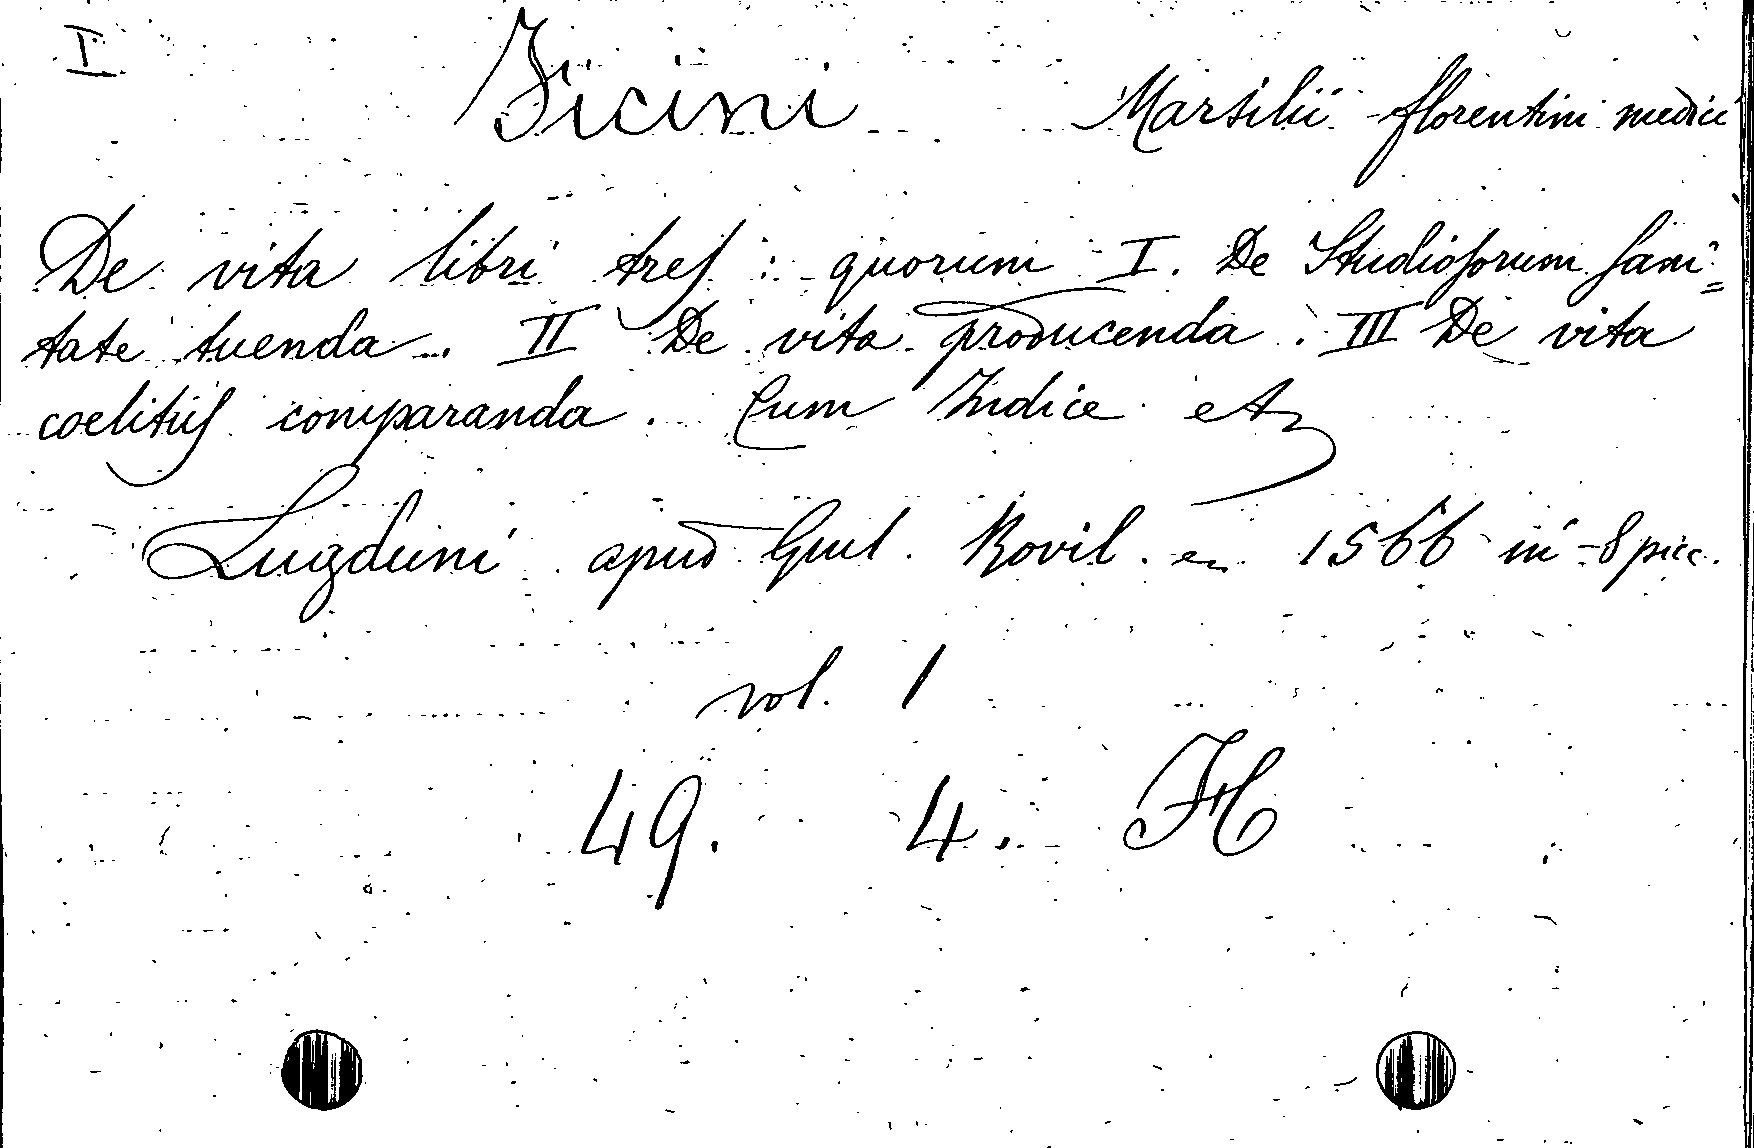 I
Ficini Marsilii florentini medici
De vita libri tres : quorum I. De Studiosorum sani=
tate tuenda. II De vita producenda. III De vita
coelitus comparanda. Cum Indice et
Lugduni apud Guil. Rovil. en 1566 in-8 picc.
vol. 1
49. 4. H